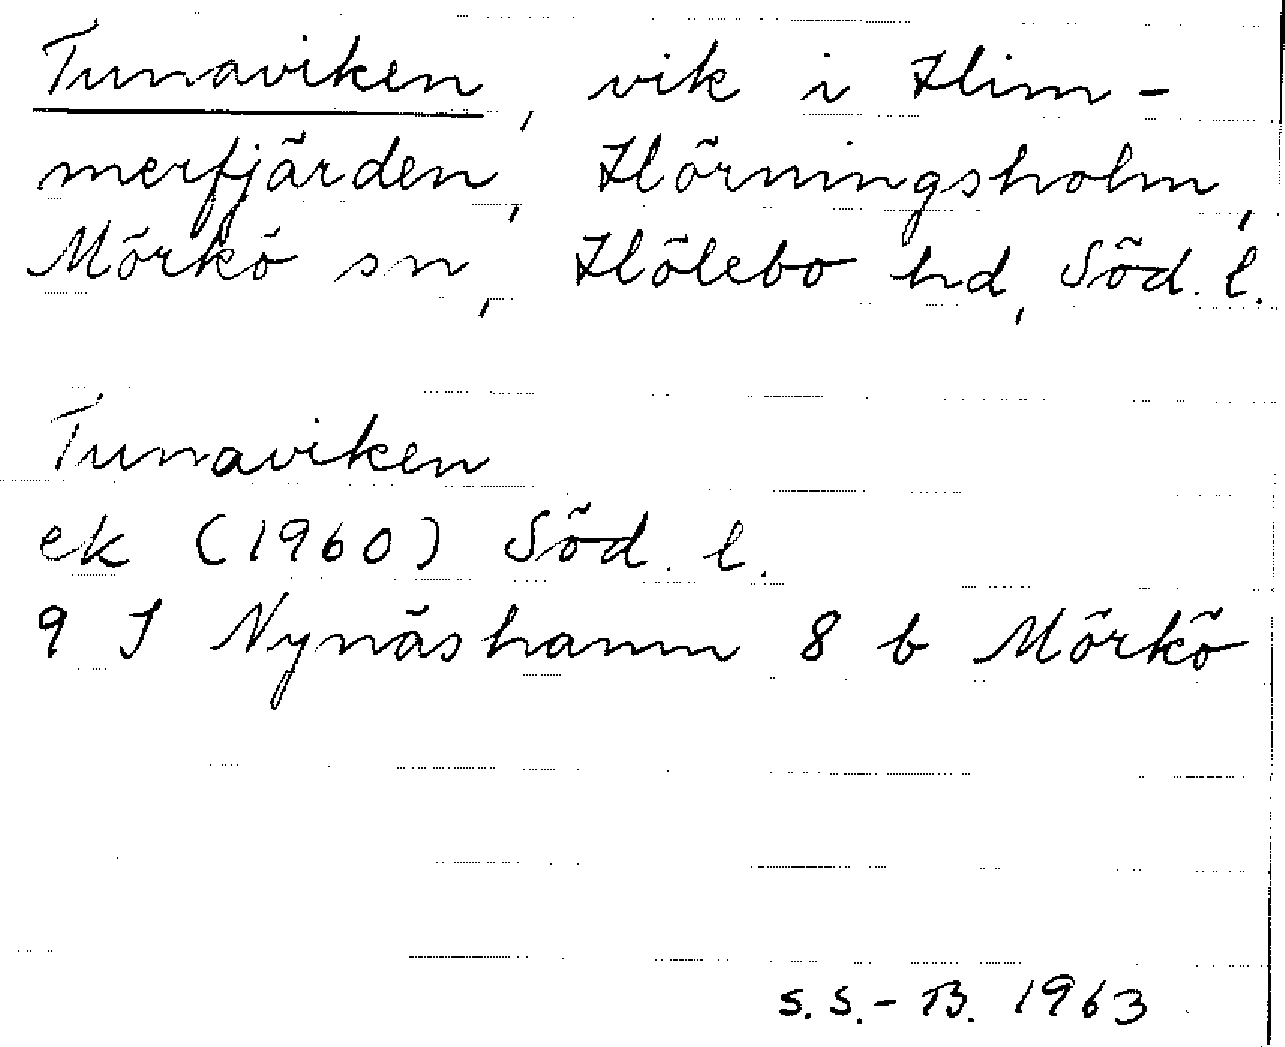 Tunaviken, vik i Him-
merfjärden, Hörningsholm,
Mörkö sn, Hölebo hd, Söd. l.
Tunaviken
ek (1960) Söd. l.
9 I Nynäshamn 8 b Mörkö
S.S.-B. 1963